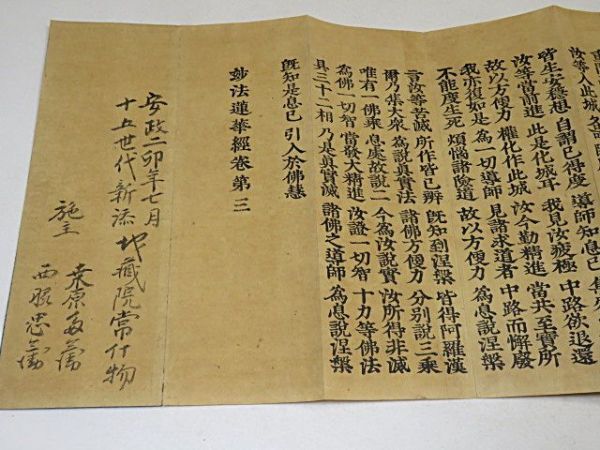 汝等入此城 各可隨所
皆生安隱想 自謂已得度 導師知息已 集
汝等當前進 此是化城耳 我見汝疲極 中路欲退還
故以方便力 權化作此城 汝今勤精進 當共至寶所
我亦復如是 為一切導師 見諸求道者 中路而懈廢
不能度生死 煩惱諸險道 故以方便力 為息說涅槃
言汝等苦滅 所作皆已辦 既知到涅槃 皆得阿羅漢
爾乃集大衆 為說真實法 諸佛方便力 分別說三乘
唯有一佛乘 息處故說二 今為汝說實 汝所得非滅
為佛一切智 當發大精進 汝證一切智 十力等佛法
具三十二相 乃是真實滅 諸佛之導師 為息說涅槃
既知是息已 引入於佛慧
妙法蓮華經卷第三
安政二卯年七月
十五世代新添 地藏院常什物
施主 桒原
西 忠兵衛